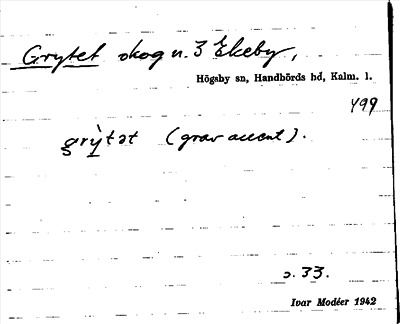 Grytet skog n. 3 Ekeby,
Högsby sn, Handbörds hd, Kalm. l.
499
grỳtət (grav accent).
s. 33.
Ivar Modéer 1942